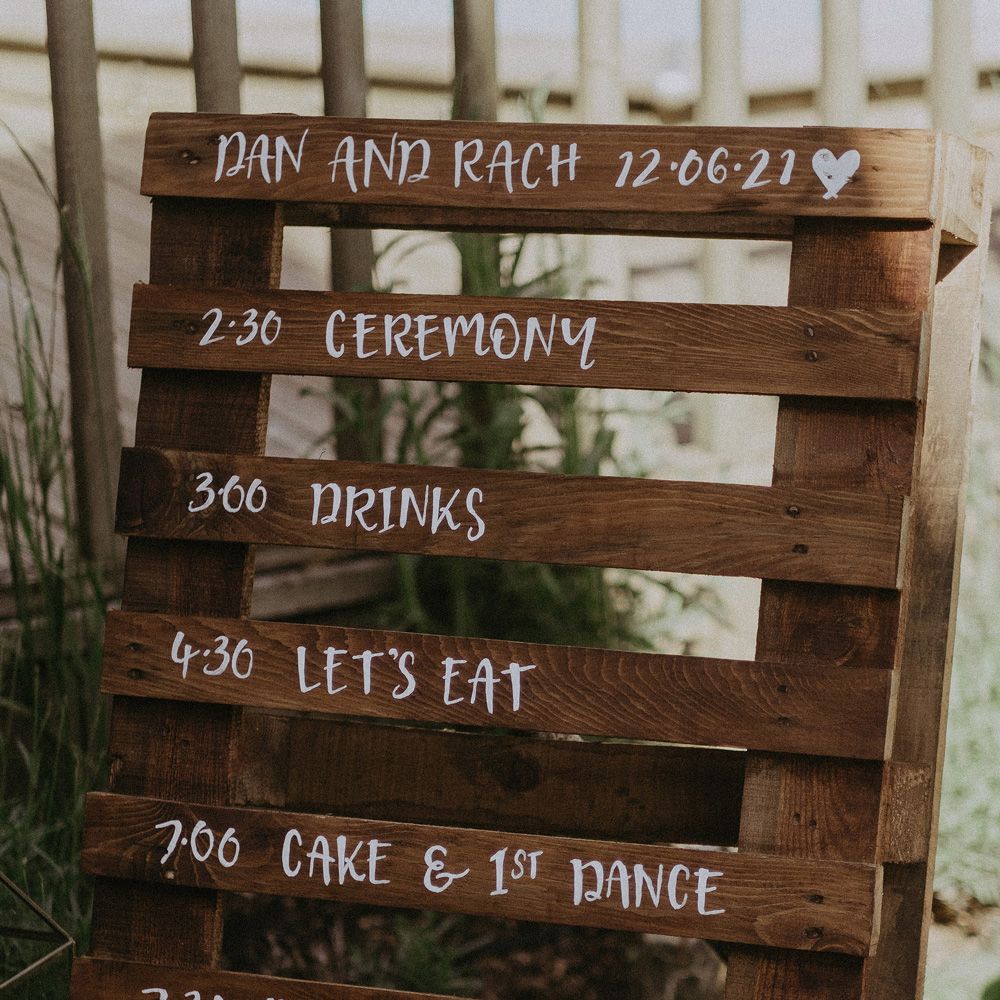 DAN AND RACH 12·06·21
2·30 CEREMONY
3·00 DRINKS
4·30 LET'S EAT
7·00 CAKE & 1ST DANCE